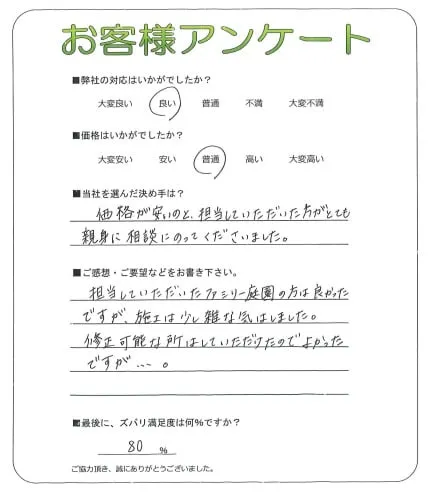 お客様アンケート
■弊社の対応はいかがでしたか？
大変良い 良い 普通 不満 大変不満
■価格はいかがでしたか？
大変安い 安い 普通 高い 大変高い
■当社を選んだ決め手は？
価格が安いのと、担当していただいた方がとても
親身に相談にのってくださいました。
■ご感想・ご要望などをお書き下さい。
担当していただいたファミリー庭園の方は良かった
ですが、施工は少し雑な気はしました。
修正可能な所はしていただけたのでよかった
ですが…。
■最後に、ズバリ満足度は何％ですか？
80 %
ご協力頂き、誠にありがとうございました。